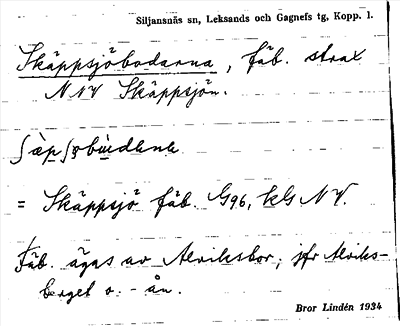 Siljansnäs sn, Leksands och Gagnefs tg, Kopp. l.
Skäppsjöbodarna, fäb. strax
NNV Skäppsjön.
= Skäppsjö fäb. G96, kG NV.
Fäb. ägas av Alviksbor; jfr Alviks-
berget o. - ån.
Bror Lindén 1934